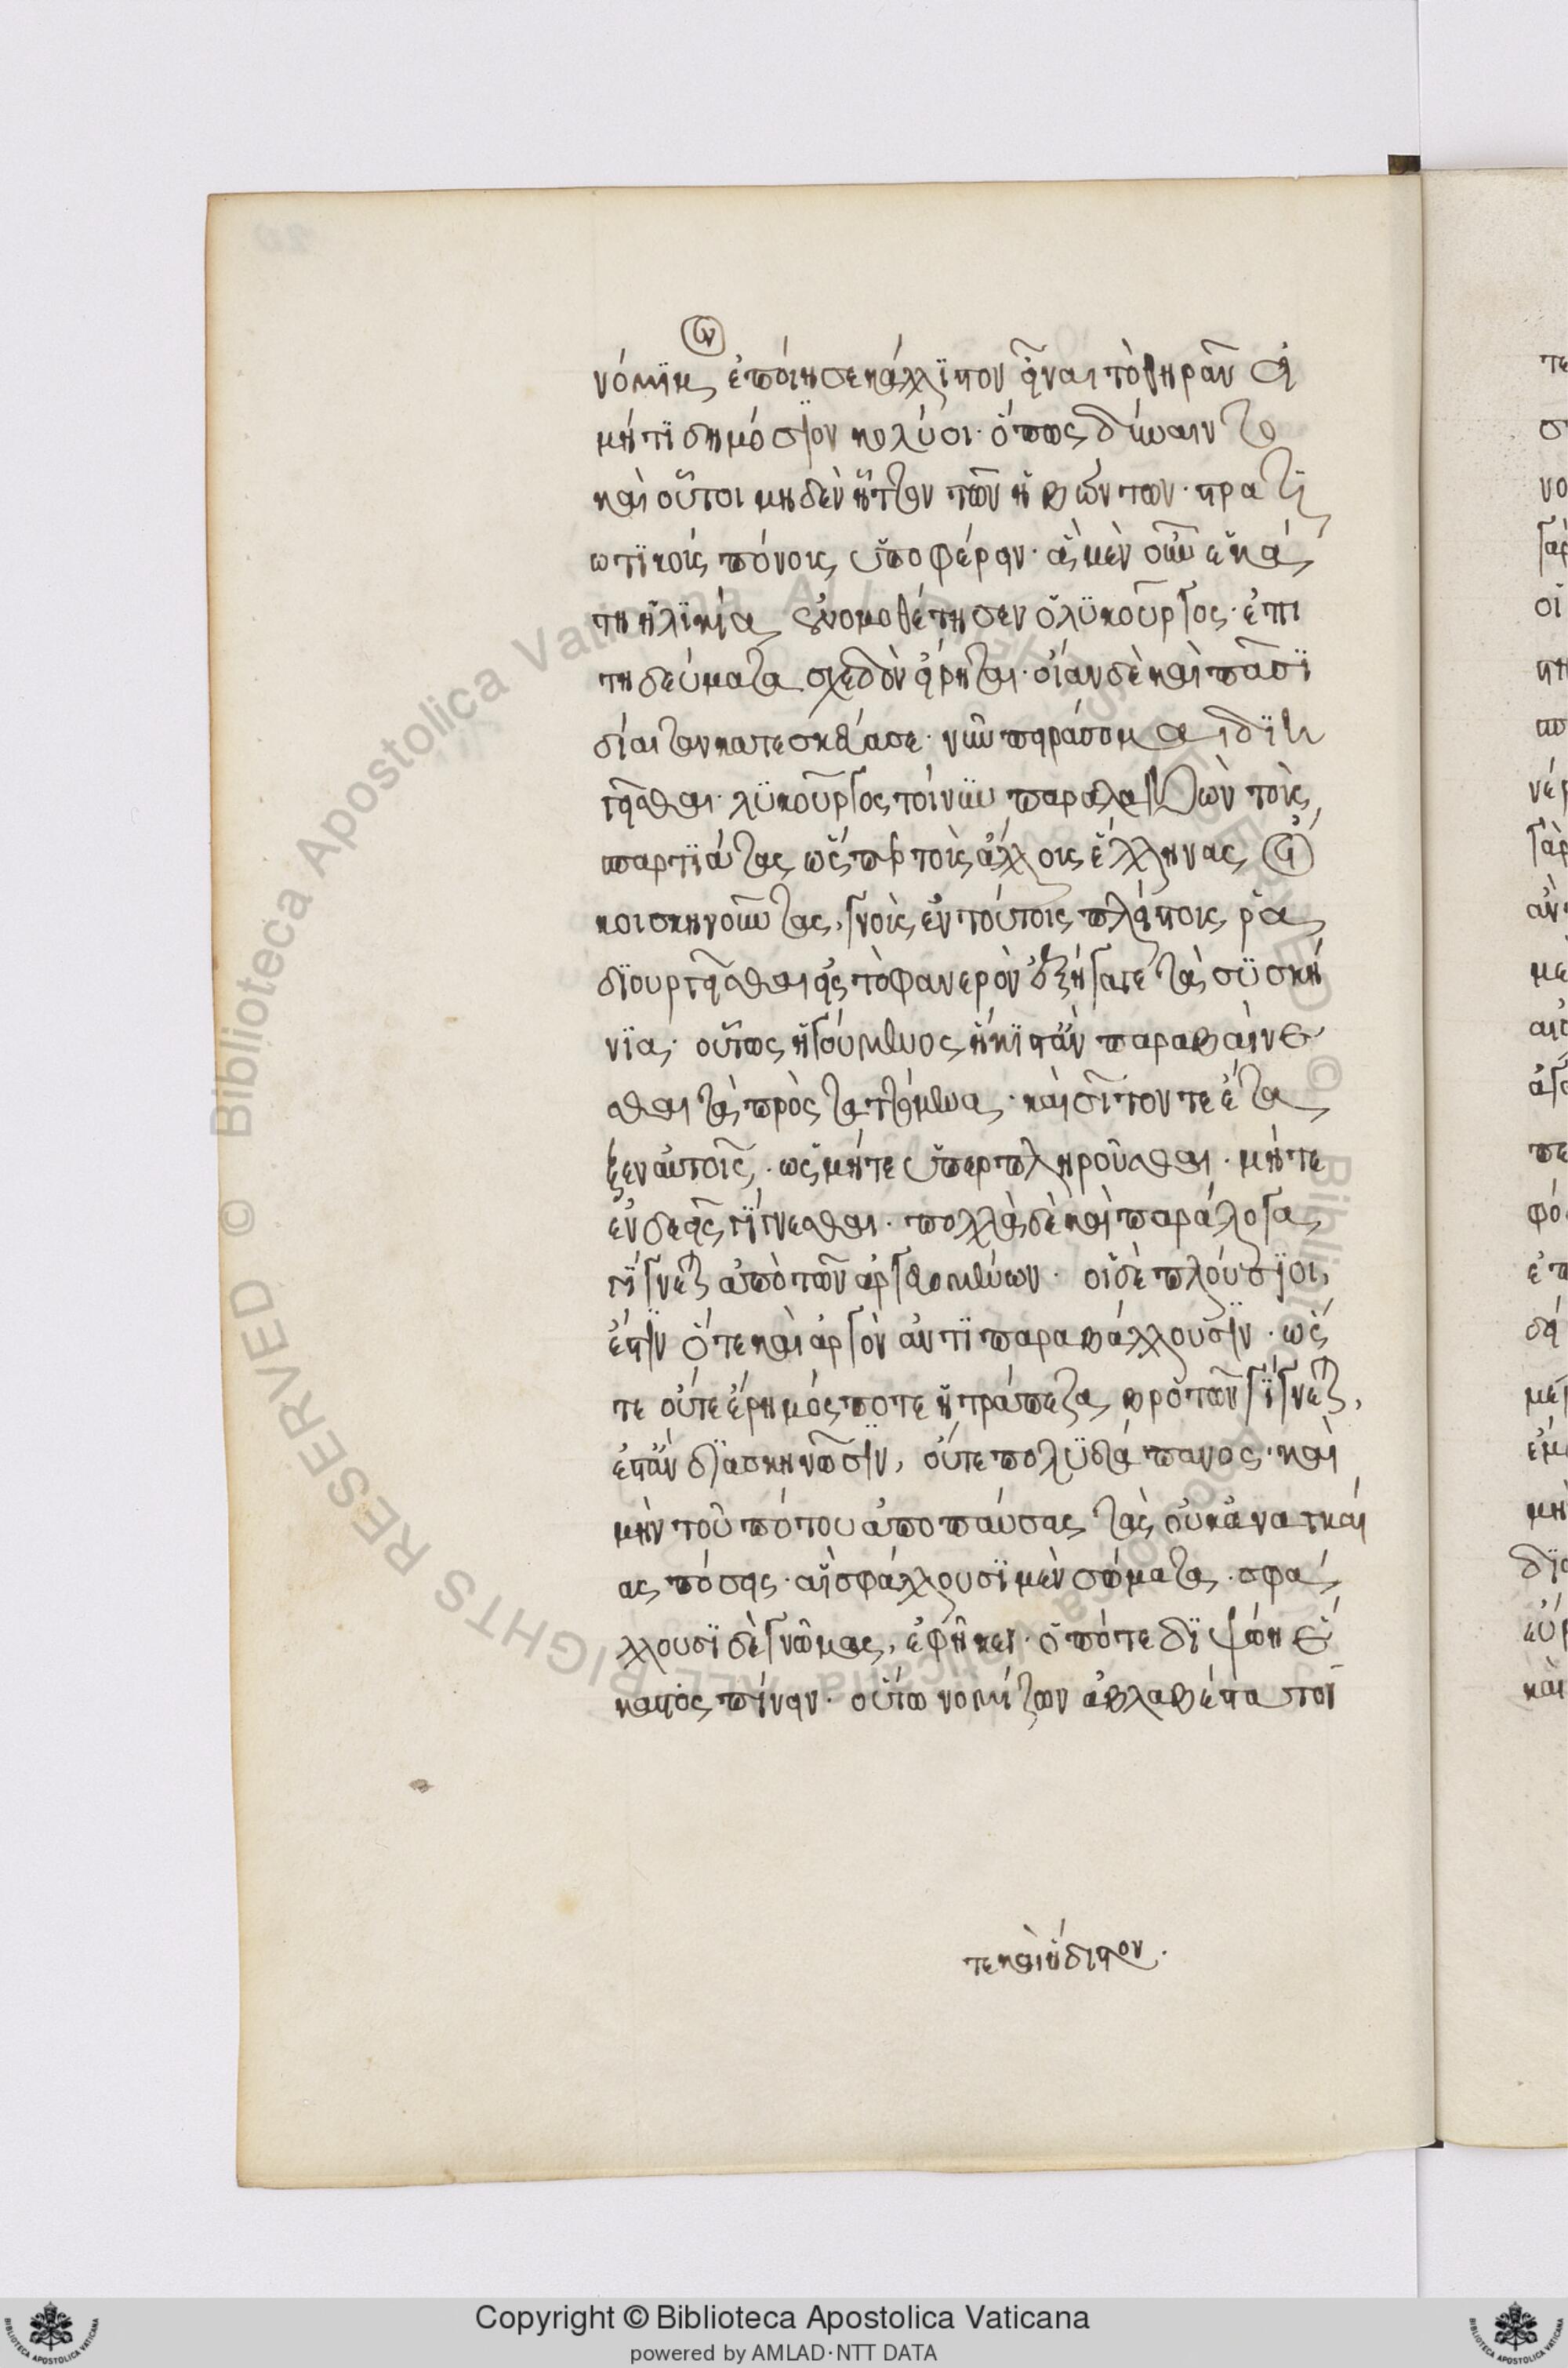 νόμϊμον ἐποίησε κάλλϊστον εἶναι τὸ θηρᾶν εἰ
μή τϊ δημόσϊον κωλύοι· ὅπως δύναιντο
καὶ οὗτοι μηδὲν ἧττον τῶν ἡβώντων στρατϊ
ωτϊκοὺς πόνους ὑποφέρειν· ἃ μὲν οὖν ἑκάσ
τη ἡλϊκία ἐνομοθέτησεν ὁ λϋκοῦργος ἐπι
τηδεύματα σχεδὸν εἴρηται· οἵαν δὲ καὶ πᾶσϊ
δίαιταν κατεσκεύασε· νῦν πειράσομαι διη
γεῖσθαι· λϋκοῦργος τοίνυν παραλαβὼν τοὺς
σπαρτϊάτας ὥσπερ τοὺς ἄλλους ἕλληνας οἴ
κοι σκηνοῦντας, γνοὺς ἐν τούτοις πλεῖστα ῥα
δϊουργεῖσθαι εἰς τὸ φανερὸν ἐξήγαγε τὰ σϋσκή
νϊα· οὕτως ἡγούμενος ἥκϊστ' ἂν παραβαίνε
σθαι τὰ προσταττόμενα· καὶ σῖτόν τε ἔτα
ξεν αὐτοῖς, ὡς μήτε ὑπερπληροῦσθαι· μήτε
ἐνδεεῖς γϊγνεσθαι· πολλὰ δὲ καὶ παράλογα
γϊγνεται ἀπὸ τῶν ἀγρευομένων· οἱ δὲ πλούσϊοι,
ἔστϊν ὅτε καὶ ἀργὸν ἀντϊπαραβάλλουσϊν· ὥσ
τε οὔτε ἔρημός ποτε ἡ τράπεζα βροτῶν γϊγνεται,
ἔστ' ἂν δϊασκηνῶσϊν, οὔτε πολϋδάπανος· καὶ
μὴν τοῦ πότου ἀποπαύσας τὰς οὐκ ἀναγκαί
ας πόσεις· αἳ σφάλλουσϊ μὲν σώματα· σφά
λλουσϊ δὲ γνώμας, ἐφῆκεν· ὁπότε δϊψώη ἕ
καστος πίνειν· οὕτω νομίζων ἀβλαβέστατόν
τε καὶ ἥδιστον·
Copyright © Biblioteca Apostolica Vaticana
powered by AMLAD·NTT DATA